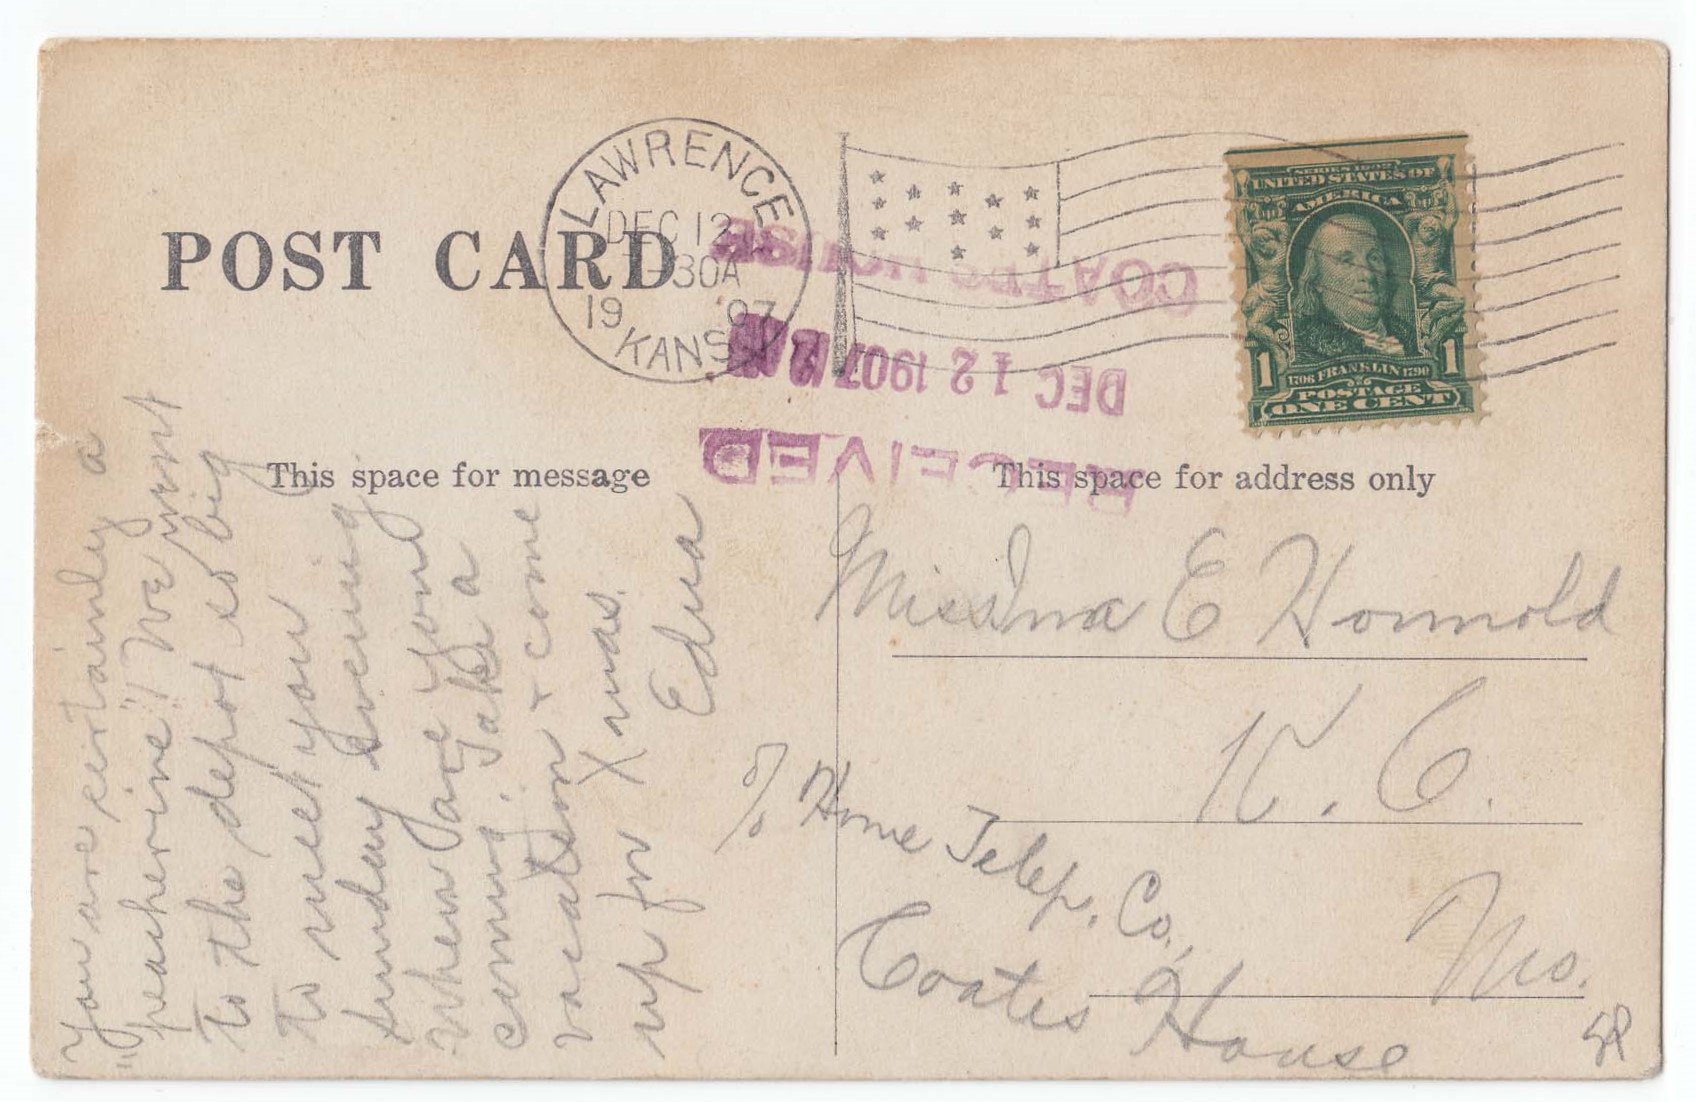 POST CARD
LAWRENCE
DEC 12
-30A
19 07
KANS.
SERIES 1902
UNITED STATES OF
AMERICA
1 1
1706 FRANKLIN 1790
POSTAGE
ONE CENT
RECEIVED
DEC 12 1907
COATES HOUSE
This space for message
This space for address only
You are certainly a
"peacherine"! We went
to the depot so big
to meet you
Sunday evening.
When are you
coming. Take a
vacation + come
up for Xmas.
Edna
Miss Ina E Honnold
K. C.
Mo.
c/o Home Telep. Co.,
Coates House